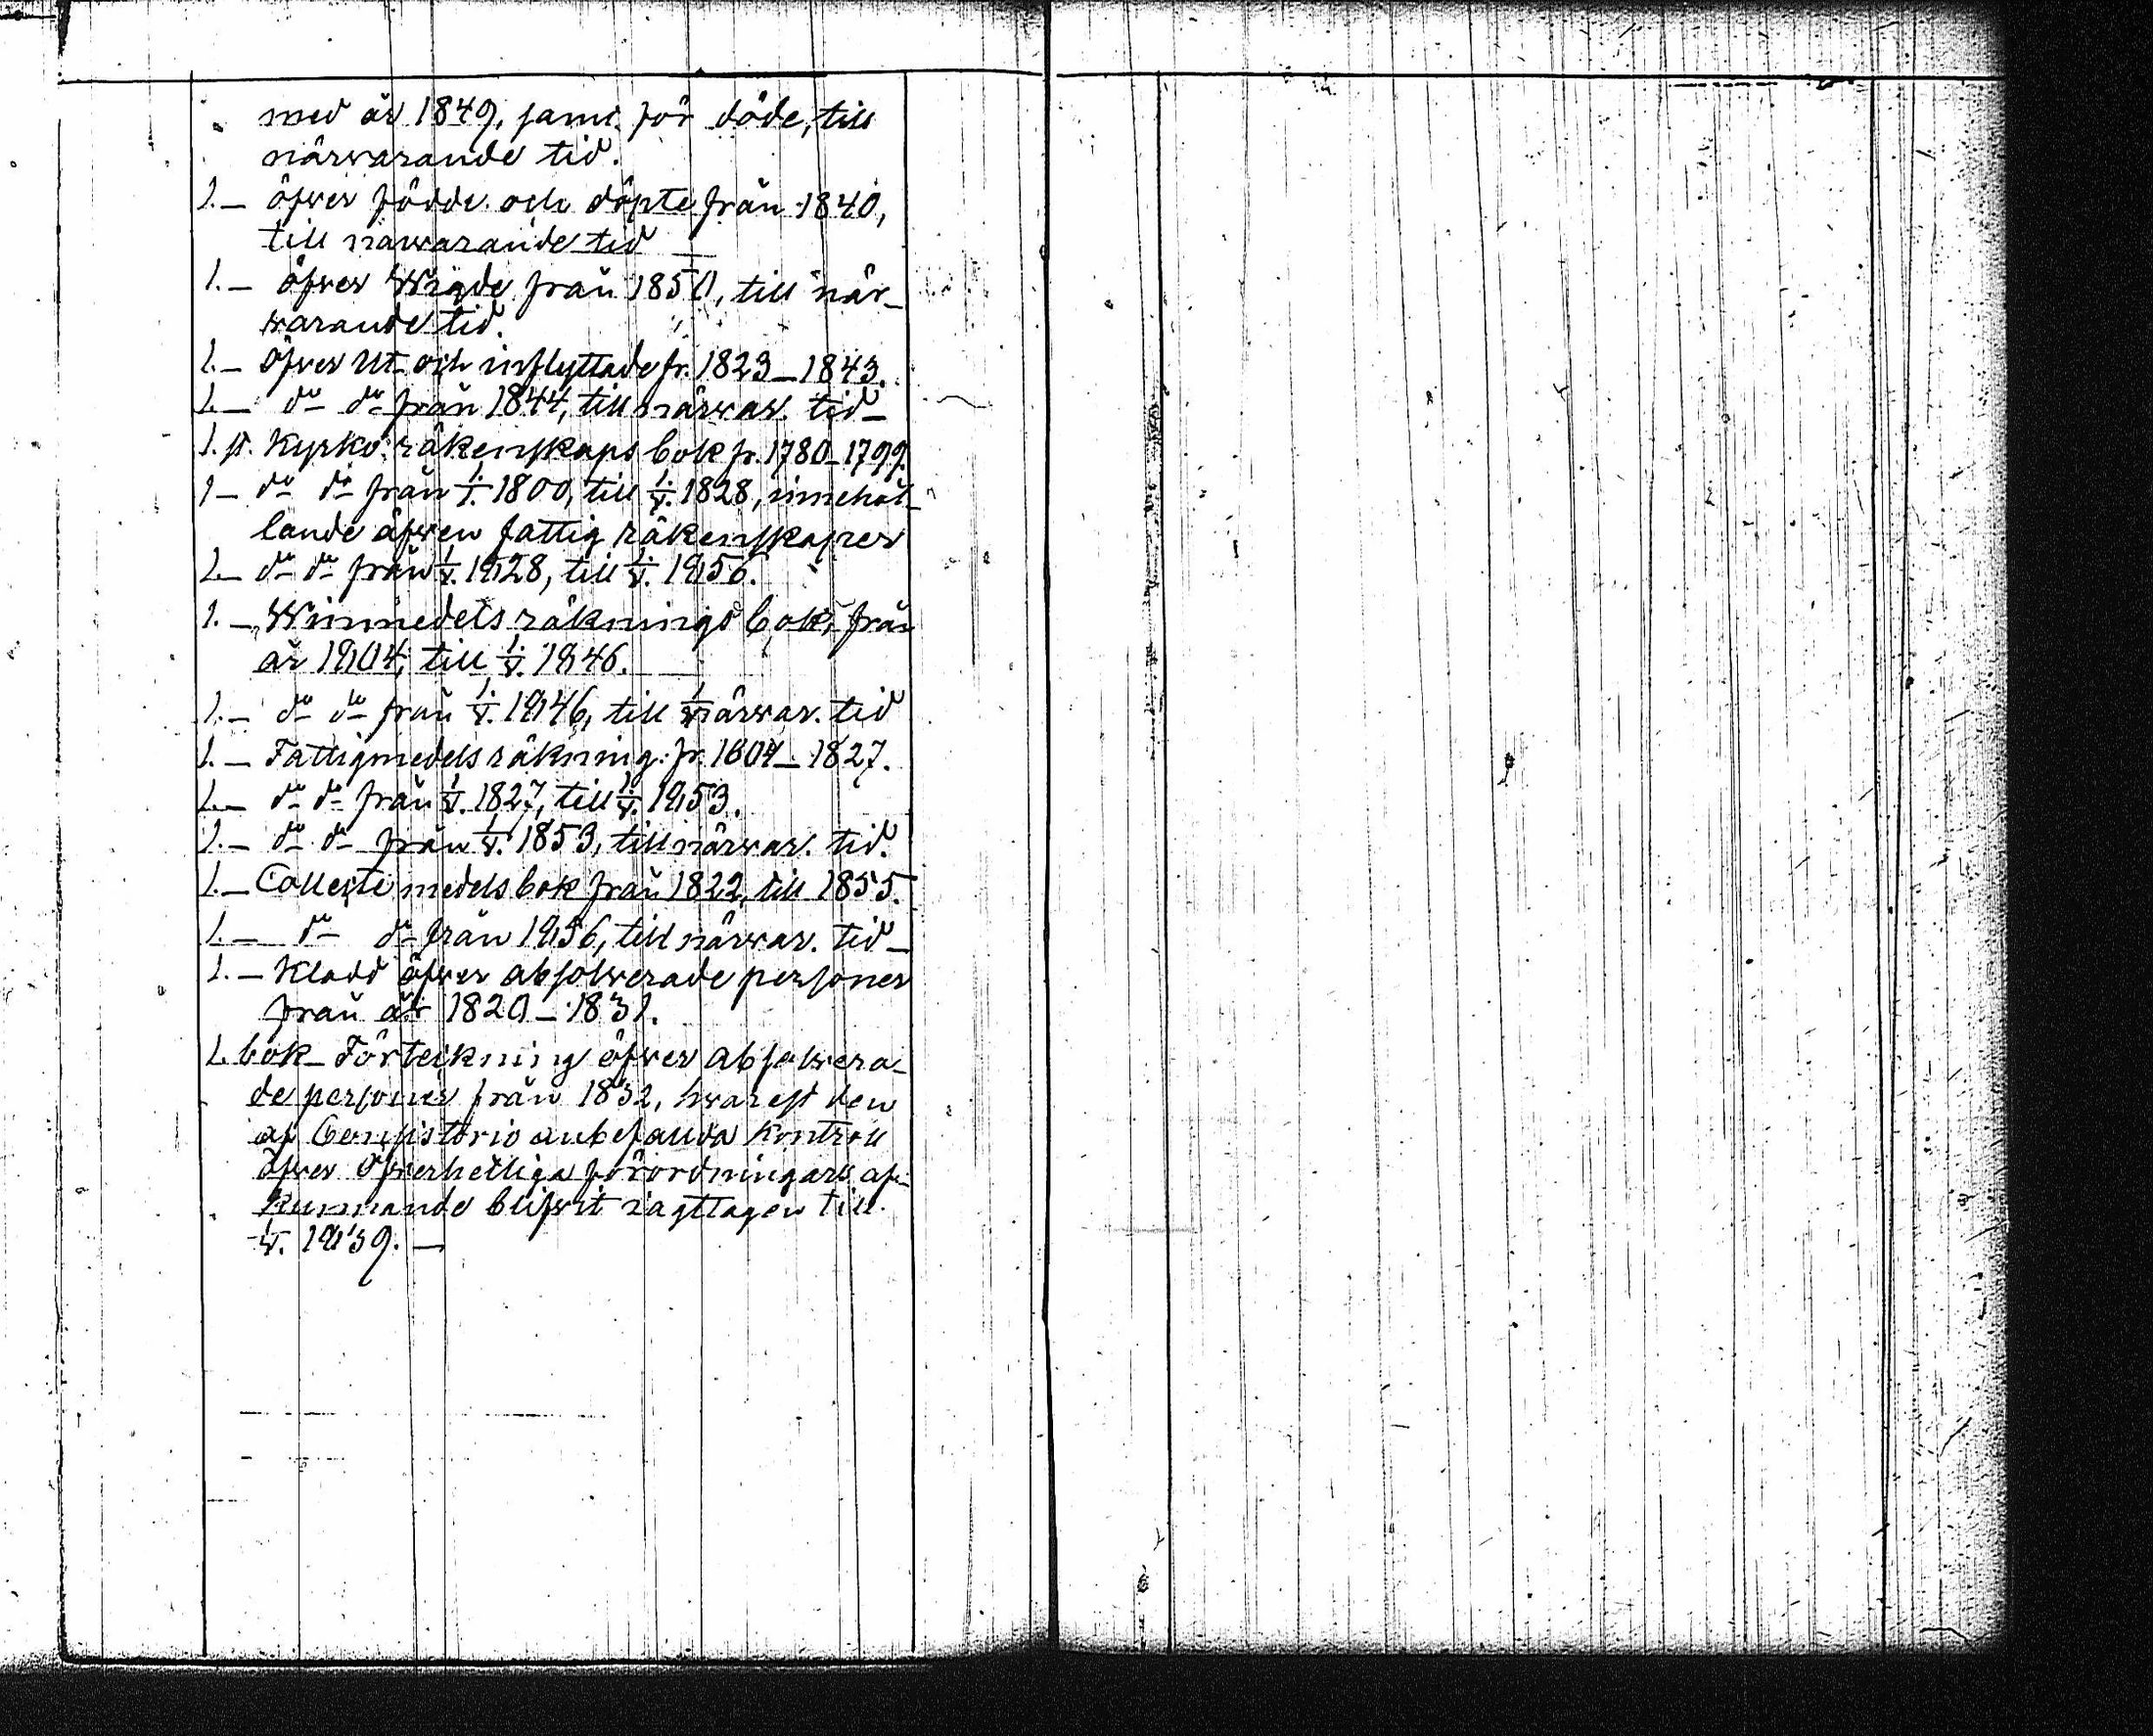 med år 1849, samt för döde, till
närvarande tid.
1.— öfver födde och döpte från 1840,
till närvarande tid —
1.— öfver Wigde från 1850, till när-
varande tid.
1.— öfver Ut- och inflyttade fr. 1823—1843.
1.— do do från 1844, till närvar. tid—
1. st. Kyrko: räkenskaps bok fr. 1780—1799.
1— do do från 1800, till 1/5. 1828, innehål-
lande äfven fattig räkenskaper
1.— do do från 1/5. 1828, till 1/5. 1856.
1.— räknings bok, från
år 1804, till 1/5. 1846.
1.— do do från 1/5. 1846, till närvar. tid
1.— Fattigmedels räkning: fr. 1804—1827.
1.— do do från 1/5. 1827, till 1/5. 1853.
1.— do do från 1/5. 1853, till närvar. tid.
1.— Collectmedels bok från 1822, till 1855.
1.— do do från 1856, till närvar. tid—
1.— Kladd öfver absolverade personer
från år 1820—1831.
1. bok— Förteckning öfver absolvera-
de personer från 1832, hvarest den
af Consistorio anbefallda Kontroll
öfver Öfverhetliga förordningars af-
kunnande blifvit iagttagen till
1/5. 1839.—